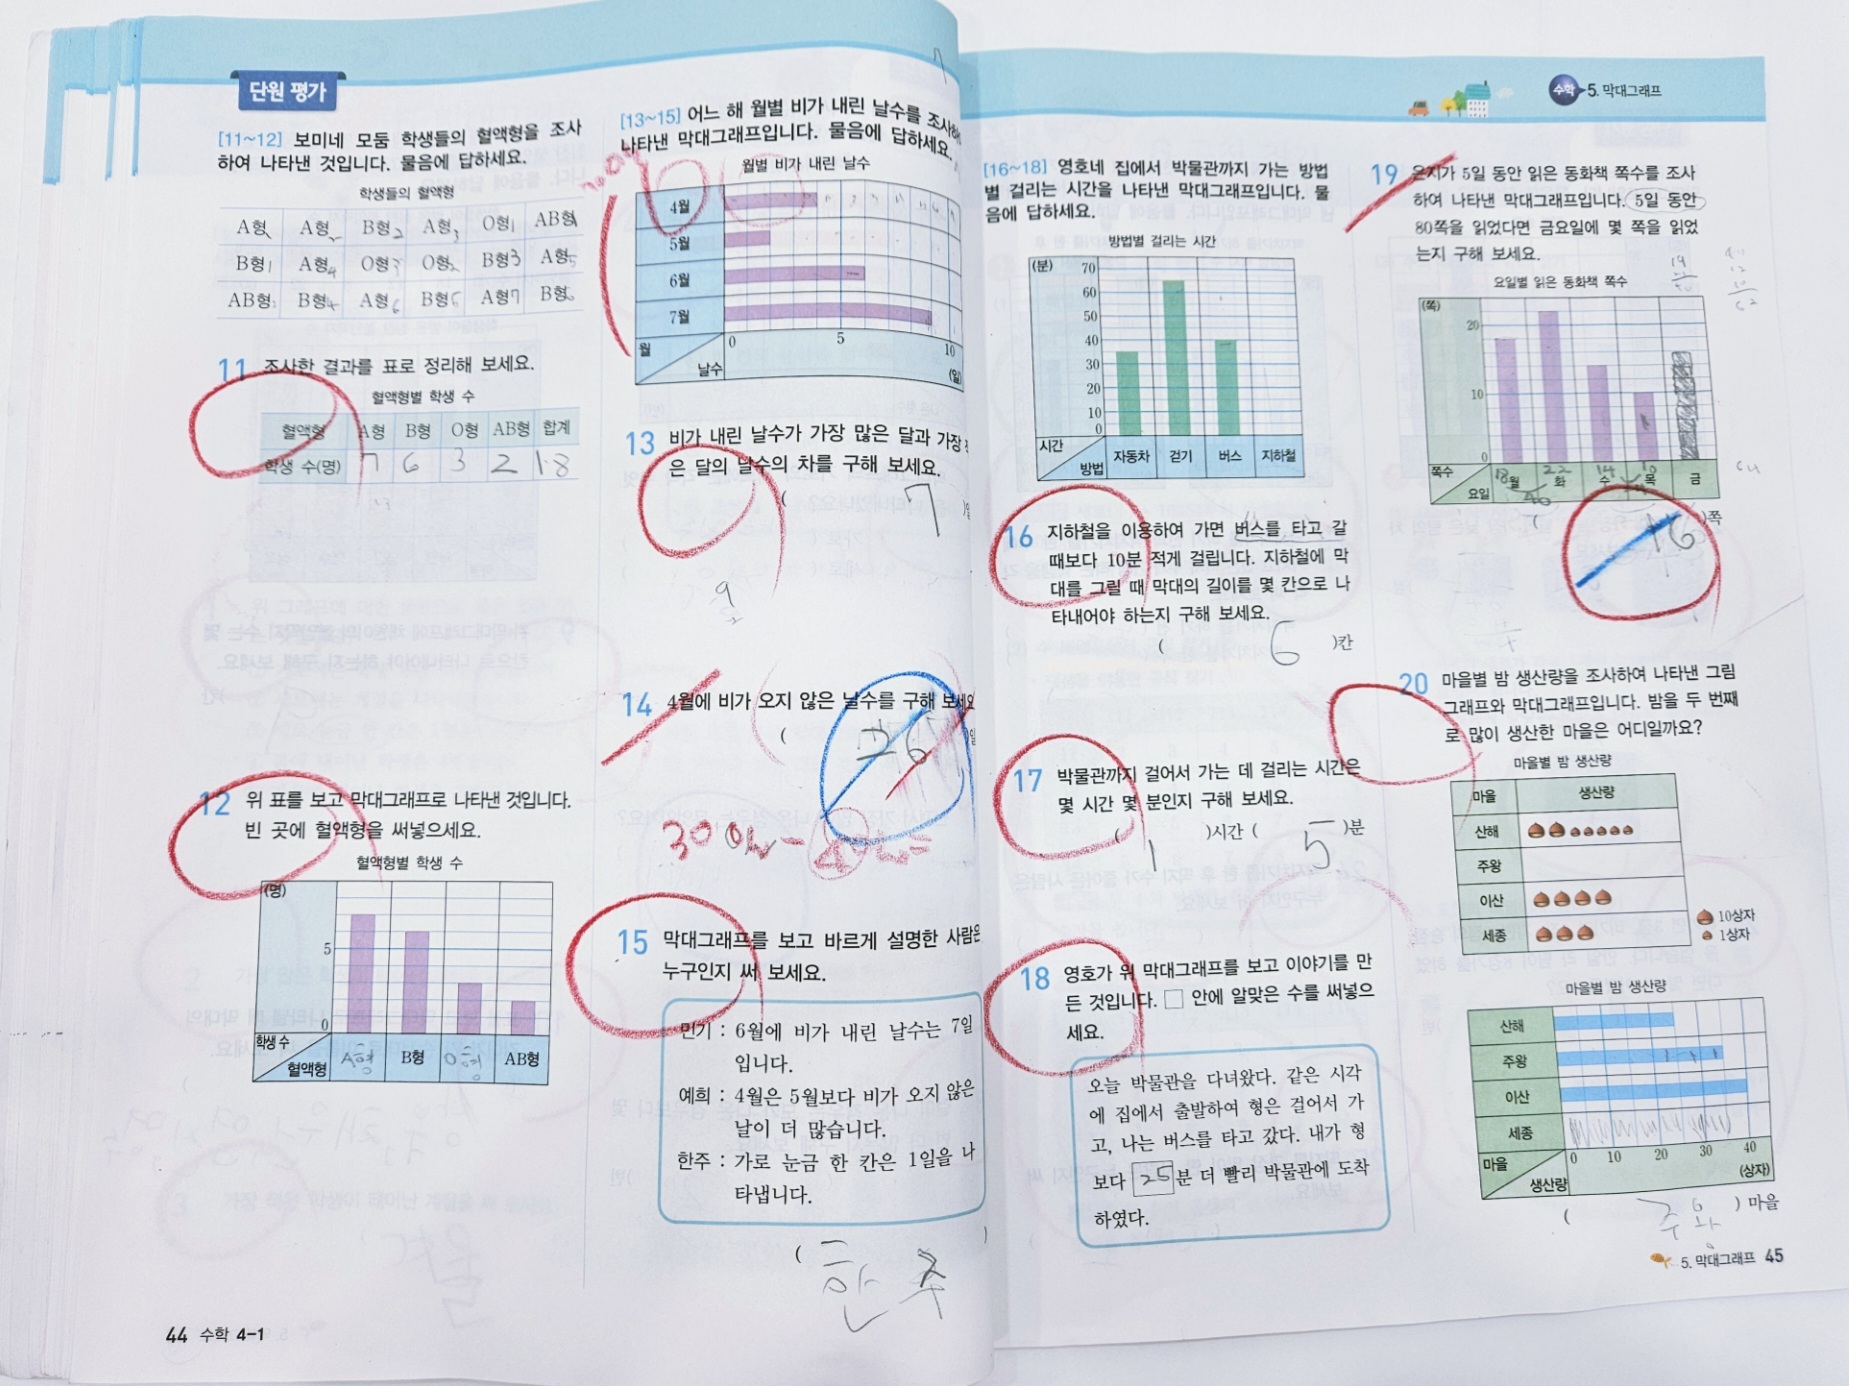 단원 평가
[11~12] 보미네 모둠 학생들의 혈액형을 조사
하여 나타낸 것입니다. 물음에 답하세요.
학생들의 혈액형
A형 A형 B형 A형 O형 AB형
B형 A형 O형 O형 B형 A형
AB형 B형 A형 B형 A형 B형
11 조사한 결과를 표로 정리해 보세요.
혈액형별 학생 수
혈액형 A형 B형 O형 AB형 합계
학생 수(명) 7 6 3 2 18
12 위 표를 보고 막대그래프로 나타낸 것입니다.
빈 곳에 혈액형을 써넣으세요.
혈액형별 학생 수
(명)
5
0
학생 수
혈액형 A형 B형 O형 AB형
44 수학 4-1
[13~15] 어느 해 월별 비가 내린 날수를 조사하
나타낸 막대그래프입니다. 물음에 답하세요.
월별 비가 내린 날수
4월
5월
6월
7월
월 0 5 10
날수 (일)
13 비가 내린 날수가 가장 많은 달과 가장
은 달의 날수의 차를 구해 보세요.
( 7 )일
9
2
14 4월에 비가 오지 않은 날수를 구해 보세요
( 26
30일-
15 막대그래프를 보고 바르게 설명한 사람은
누구인지 써 보세요.
민기 : 6월에 비가 내린 날수는 7일
입니다.
예희 : 4월은 5월보다 비가 오지 않은
날이 더 많습니다.
한주 : 가로 눈금 한 칸은 1일을 나
타냅니다.
( 한주 )
수학 5. 막대그래프
[16~18] 영호네 집에서 박물관까지 가는 방법
별 걸리는 시간을 나타낸 막대그래프입니다. 물
음에 답하세요.
방법별 걸리는 시간
(분) 70
60
50
40
30
20
10
0
시간
방법 자동차 걷기 버스 지하철
16 지하철을 이용하여 가면 버스를 타고 갈
때보다 10분 적게 걸립니다. 지하철에 막
대를 그릴 때 막대의 길이를 몇 칸으로 나
타내어야 하는지 구해 보세요.
( 6 )칸
17 박물관까지 걸어서 가는 데 걸리는 시간은
몇 시간 몇 분인지 구해 보세요.
( 1 )시간 ( 5 )분
18 영호가 위 막대그래프를 보고 이야기를 만
든 것입니다. □ 안에 알맞은 수를 써넣으
세요.
오늘 박물관을 다녀왔다. 같은 시각
에 집에서 출발하여 형은 걸어서 가
고, 나는 버스를 타고 갔다. 내가 형
보다 25 분 더 빨리 박물관에 도착
하였다.
19 은지가 5일 동안 읽은 동화책 쪽수를 조사
하여 나타낸 막대그래프입니다. 5일 동안
80쪽을 읽었다면 금요일에 몇 쪽을 읽었
는지 구해 보세요.
요일별 읽은 동화책 쪽수
(쪽)
20
10
0
쪽수 18 22 14 10
요일 월 화 수 목 금
( 16 )쪽
20 마을별 밤 생산량을 조사하여 나타낸 그림
그래프와 막대그래프입니다. 밤을 두 번째
로 많이 생산한 마을은 어디일까요?
마을별 밤 생산량
마을 생산량
산해
주왕
이산
세종
10상자
1상자
마을별 밤 생산량
산해
주왕
이산
세종
마을 0 10 20 30 40
생산량 (상자)
( 주왕 ) 마을
5. 막대그래프 45